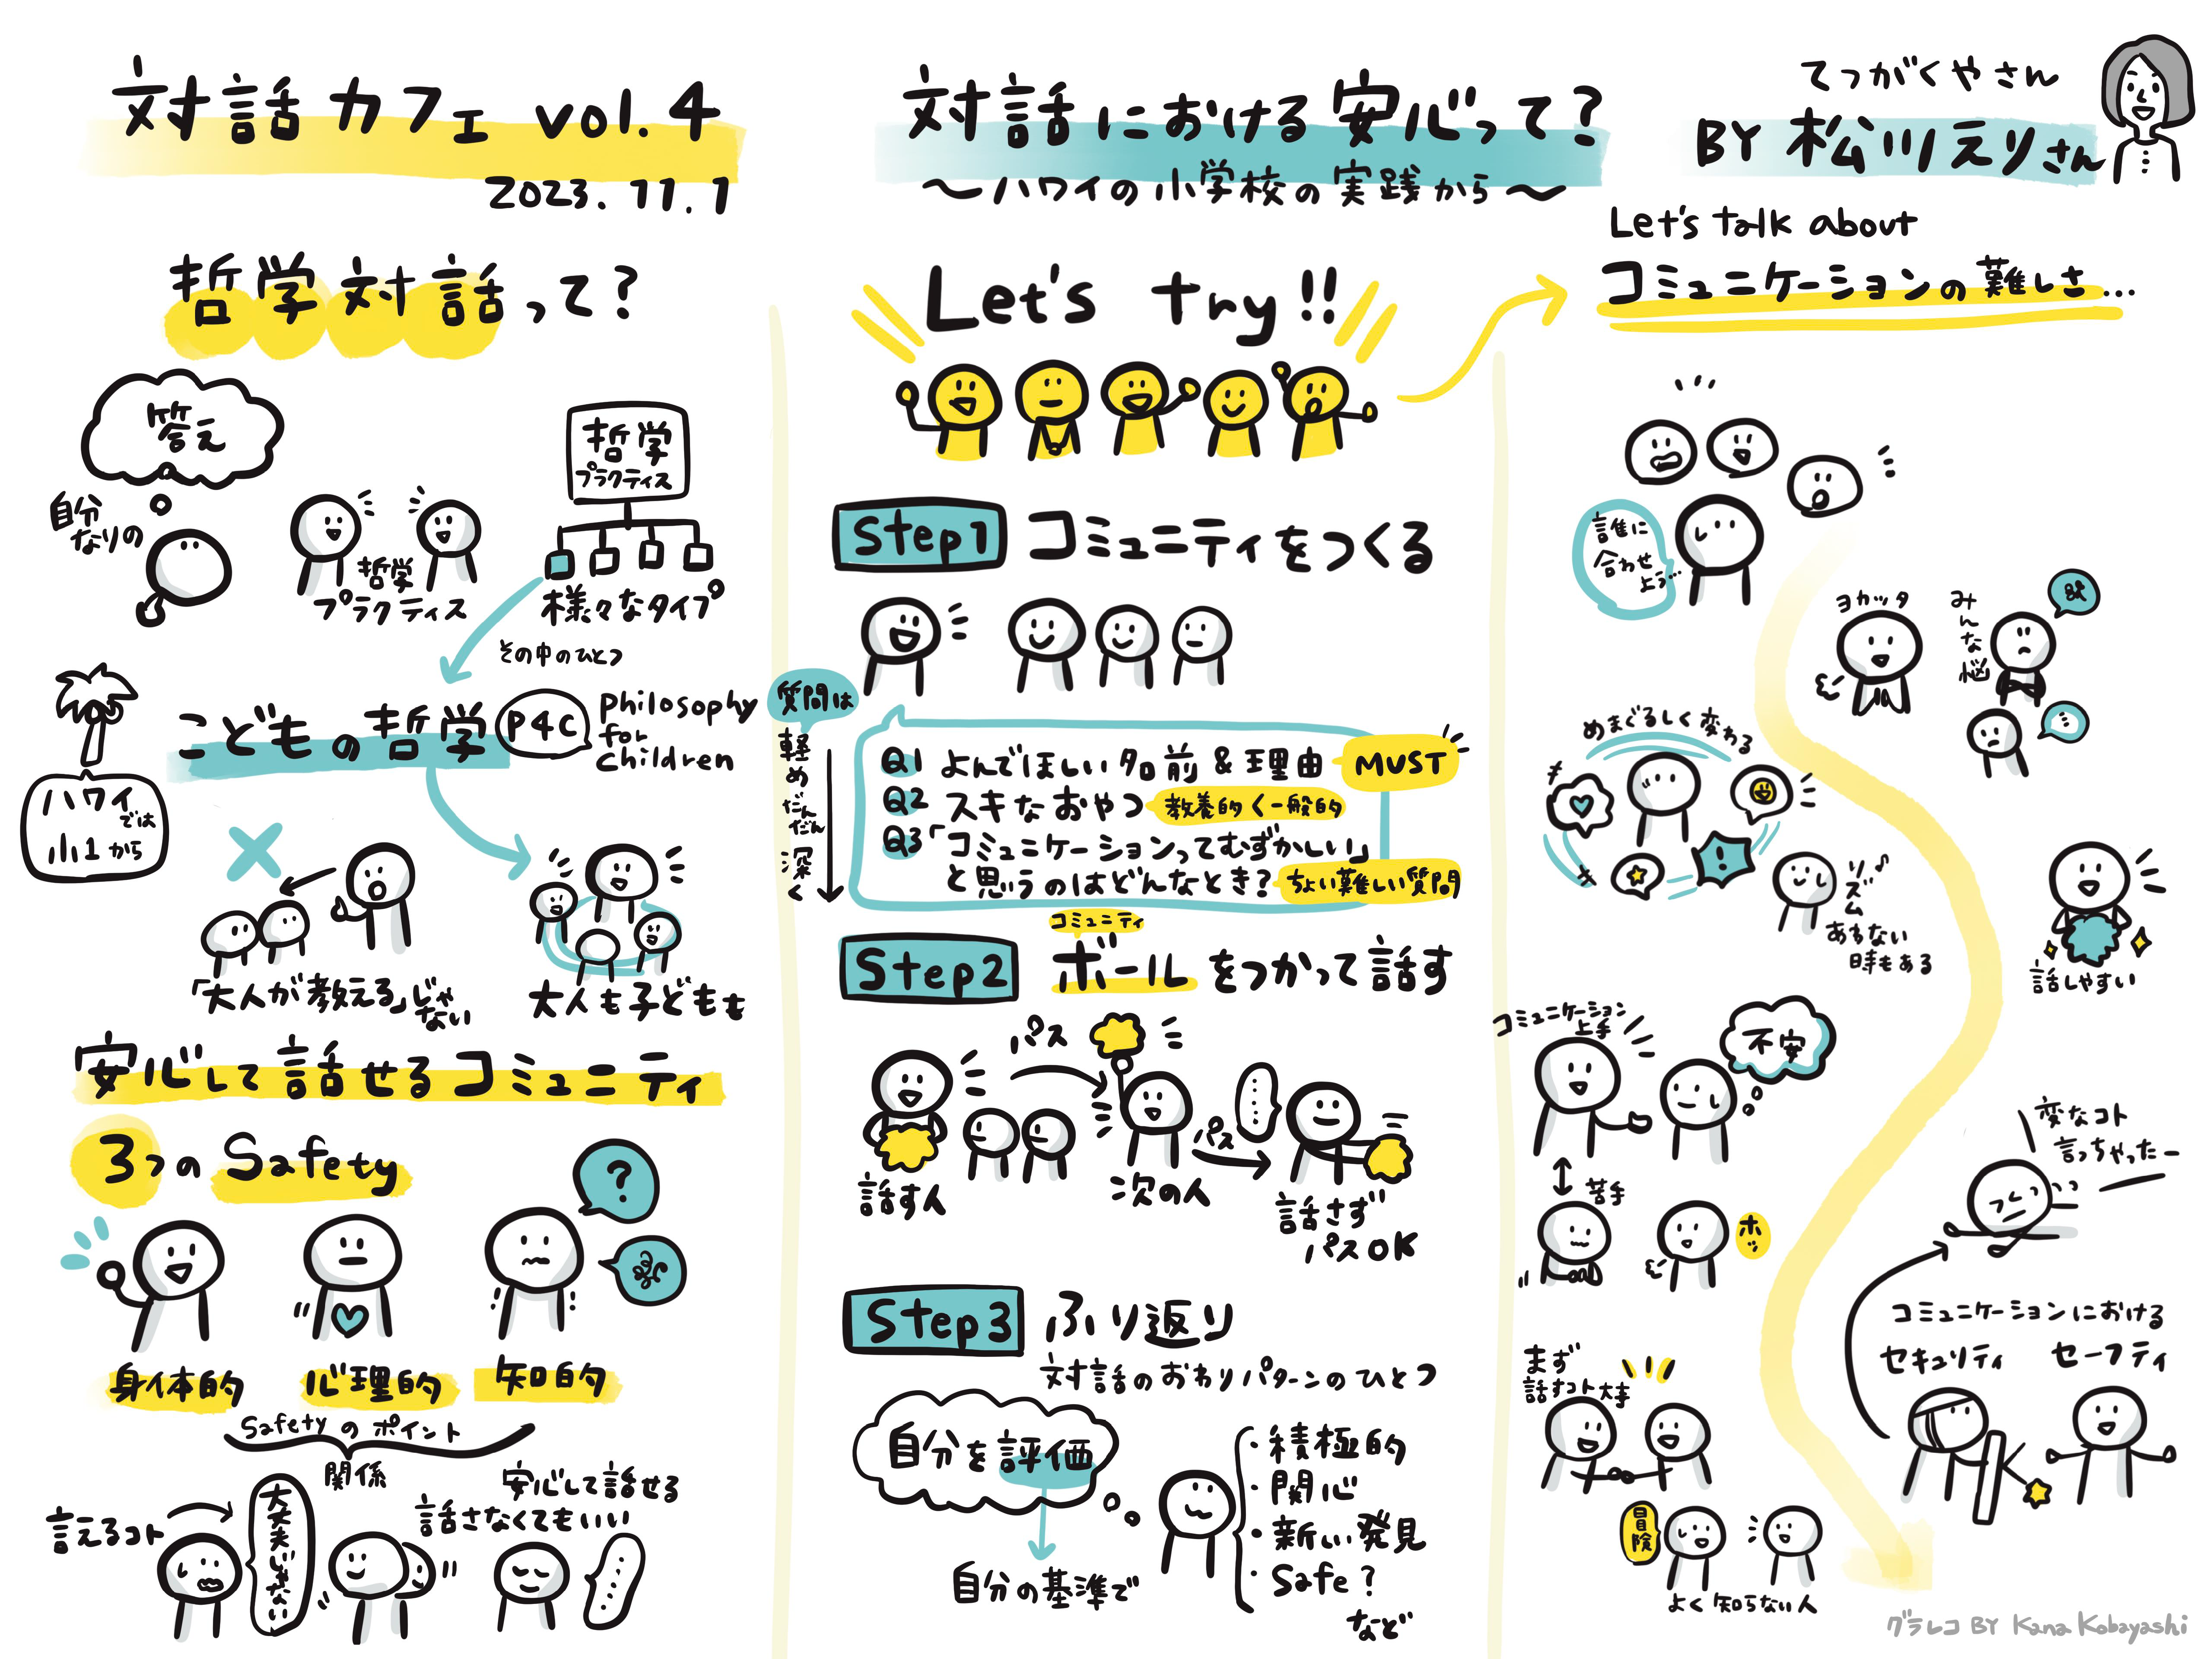 対話カフェ vol.4
2023.11.1
対話における安心って?
〜ハワイの小学校の実践から〜
てつがくやさん
BY 松川えりさん
哲学対話って?
答え
自分
なりの
哲学
プラクティス
哲学
プラクティス
様々なタイプ
その中のひとつ
こどもの哲学
P4C
Philosophy
for
children
ハワイ
では
小1から
「大人が教える」じゃ
ない
大人も子どもも
安心して話せるコミュニティ
3つの Safety
?
身体的
心理的
知的
Safetyのポイント
関係
言えるコト
大丈夫じゃない
安心して話せる
話さなくてもいい
Let's try!!
Step1 コミュニティをつくる
質問は
軽め
だんだん
深く
Q1 よんでほしい名前&理由 MUST
Q2 スキなおやつ 教養的<一般的
Q3「コミュニケーションってむずかしい」
と思うのはどんなとき? ちょい難しい質問
コミュニティ
Step2 ボールをつかって話す
パス
パス
話す人
次の人
話さず
パスOK
Step3 ふり返り
対話のおわりパターンのひとつ
自分を評価
自分の基準で
・積極的
・関心
・新しい発見
・Safe?
など
Let's talk about
コミュニケーションの難しさ…
誰に
合わせ
よう…
ヨカッタ
みんな悩
めまぐるしく変わる
!
リズム♪
あわない
時もある
話しやすい
コミュニケーション
上手
不安
苦手
ホッ
変なコト
言っちゃったー
コミュニケーションにおける
セキュリティ
セーフティ
まず
話すコト大事
冒険
よく知らない人
グラレコ BY Kana Kobayashi